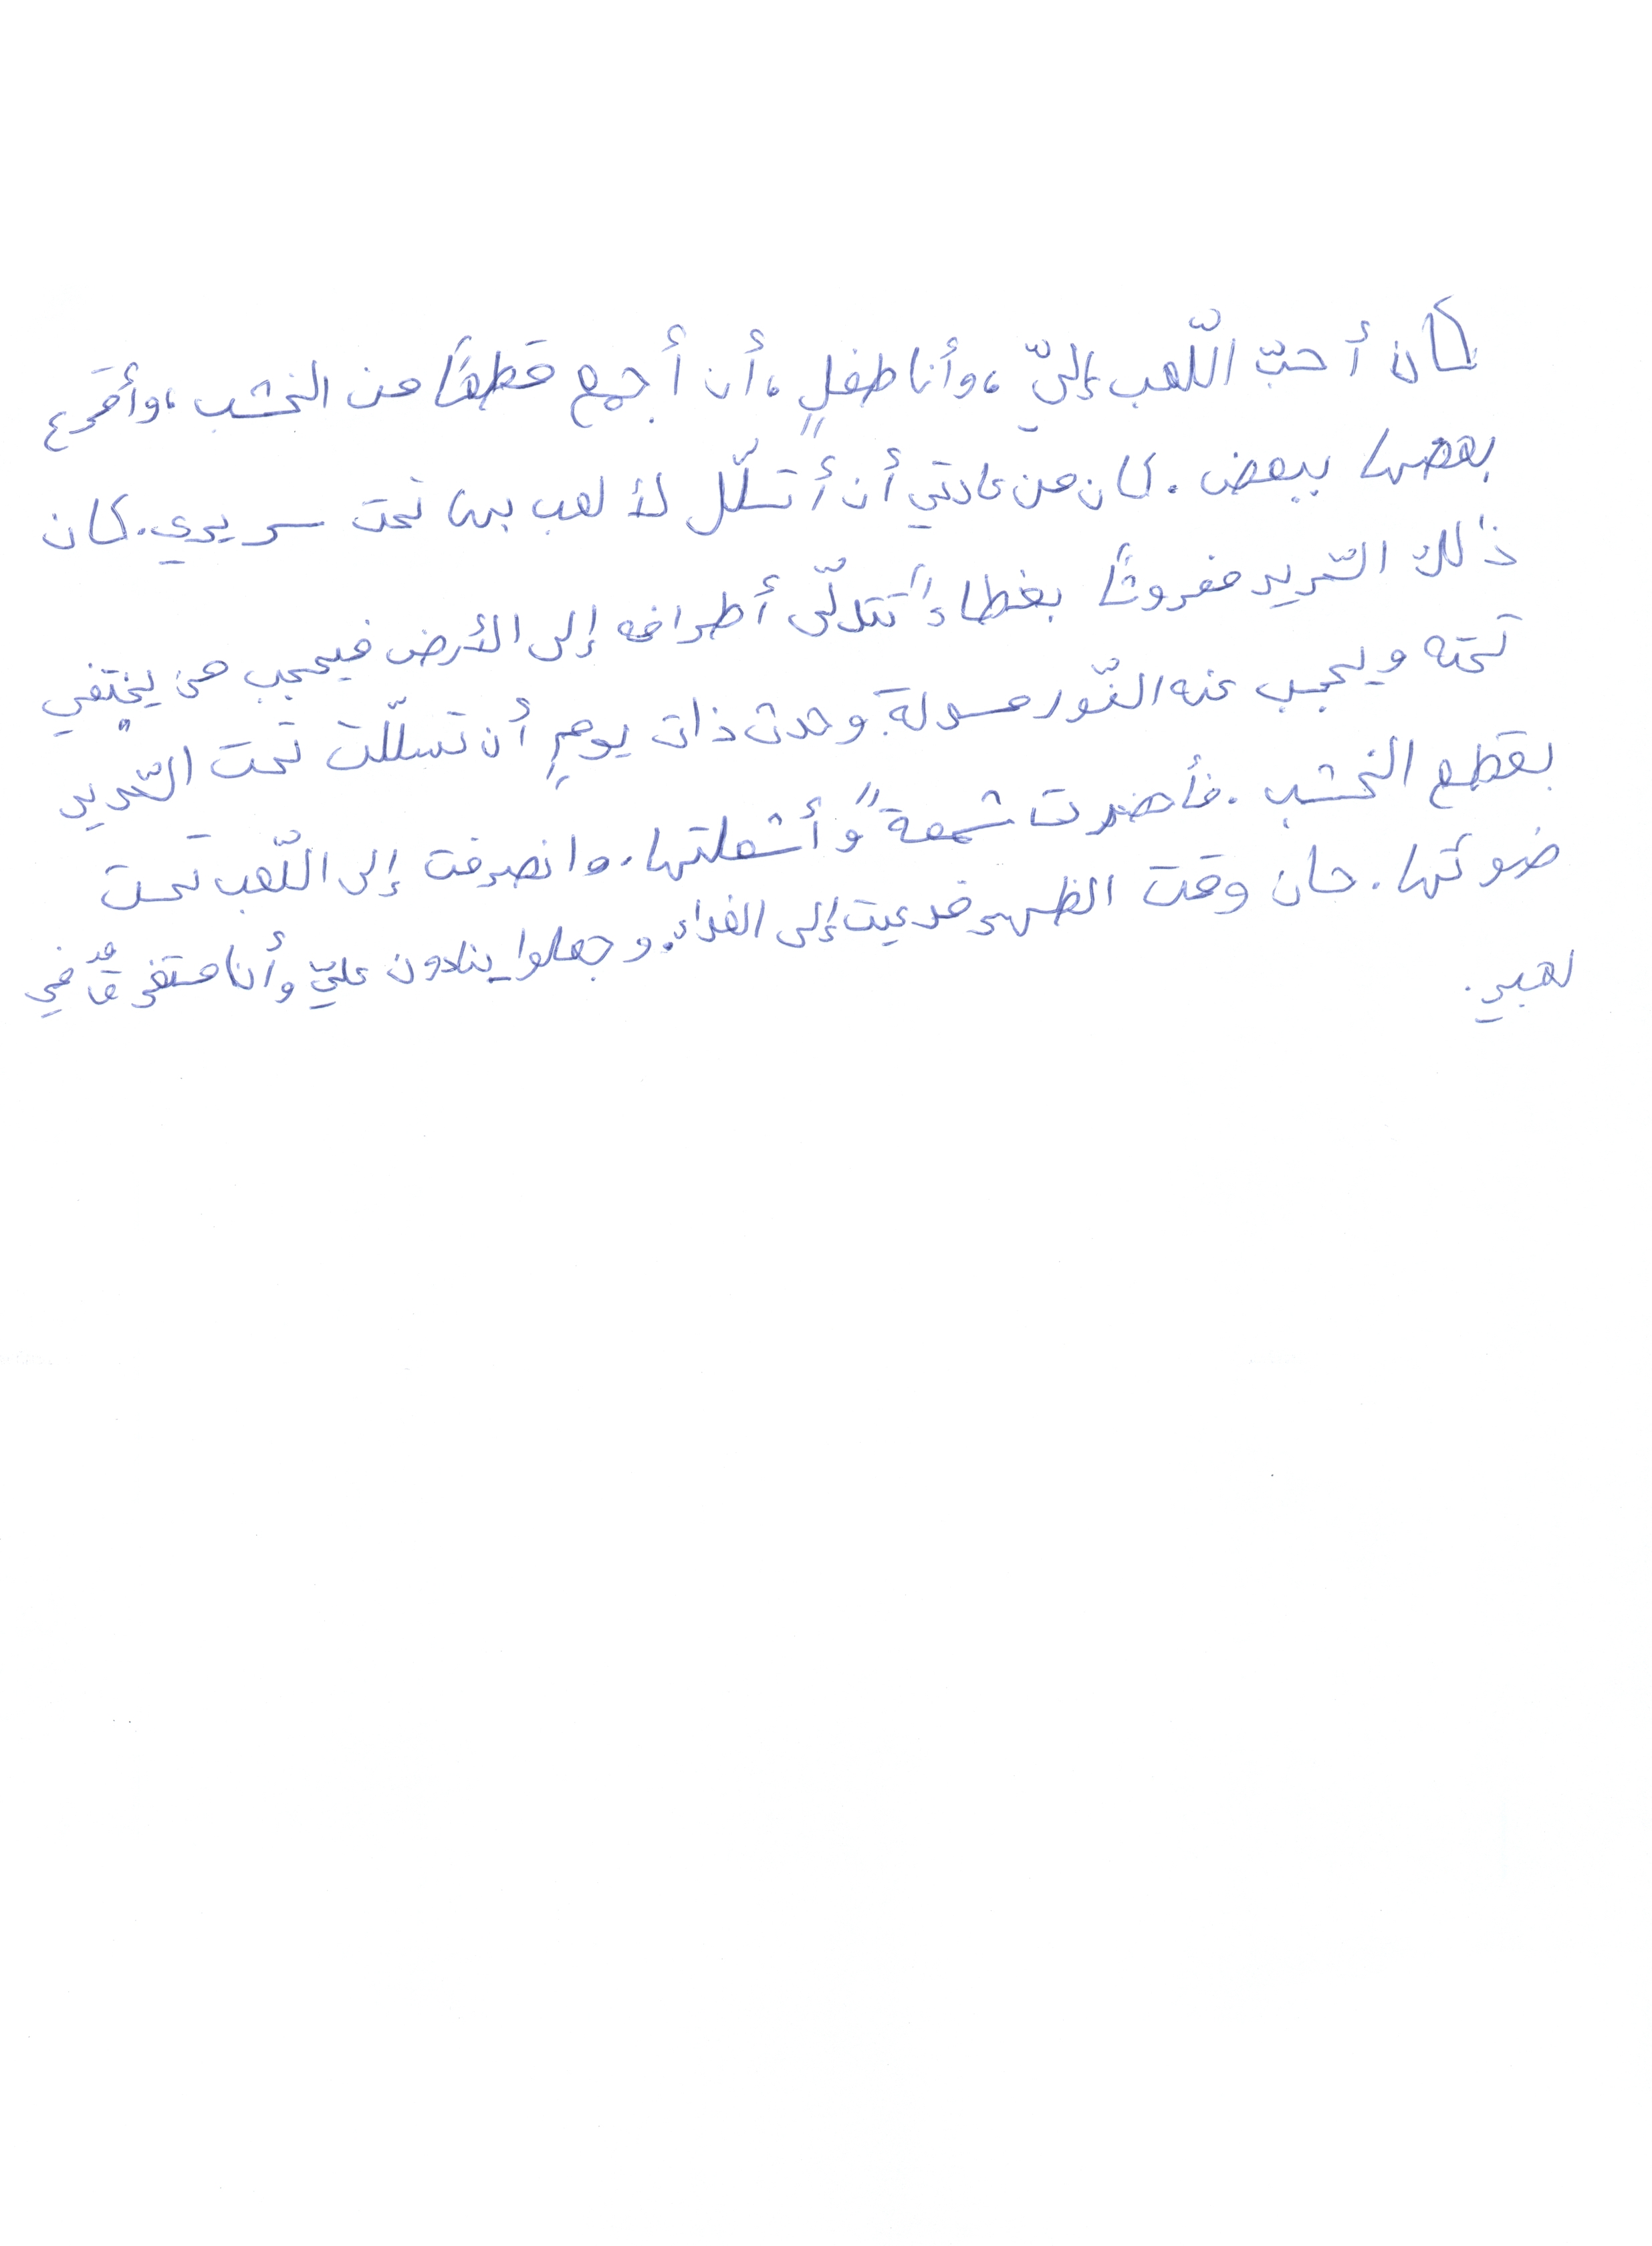 كان أحبّ اللّعب إليّ، وأنا طفلٍ، أن أجمع قطعًا من الخشب، وأقرع
بعضها ببعض. كان من عادتي أن أتسلّل لألعب بها تحت سريري. كان
ذلك السّرير مفروشًا بغطاءً تتدلّى أطرافه إلى الأرض فيحجب من يختفي
تحته ويحجب عنه النّور مسولة. وحدث ذات يومٍ أن تسلّلت تحت السّرير
بقطع الخشب. فأحضرت شمعةً وأشعلتها. وانصرفت إلى اللّعب تحت
ضوئها. حان وقت الظهر فدعيت إلى الغداء. وجعلوا ينادون عليّ وأنا مستغرقٌ في
لعبي.